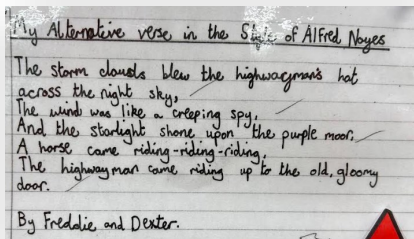 My Alternative verse in the Style of Alfred Noyes
The storm clouds blew the highwayman's hat
across the night sky,
The wind was like a creeping spy,
And the starlight shone upon the purple moor,
A horse came riding-riding-riding,
The highwayman came riding up to the old, gloomy
door.
By Freddie and Dexter.